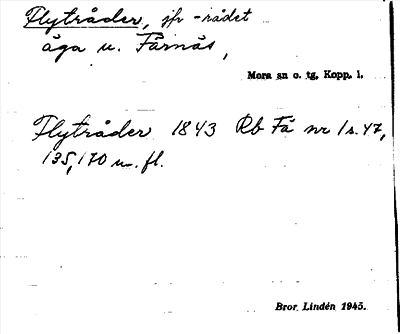 Flytråder, jfr -rådet
äga u. Färnäs,
Mora sn o. tg, Kopp. l.
Flytråder 1843 Rb Fä nr 1 s. 47,
135, 170 m. fl.
Bror Lindén 1945.